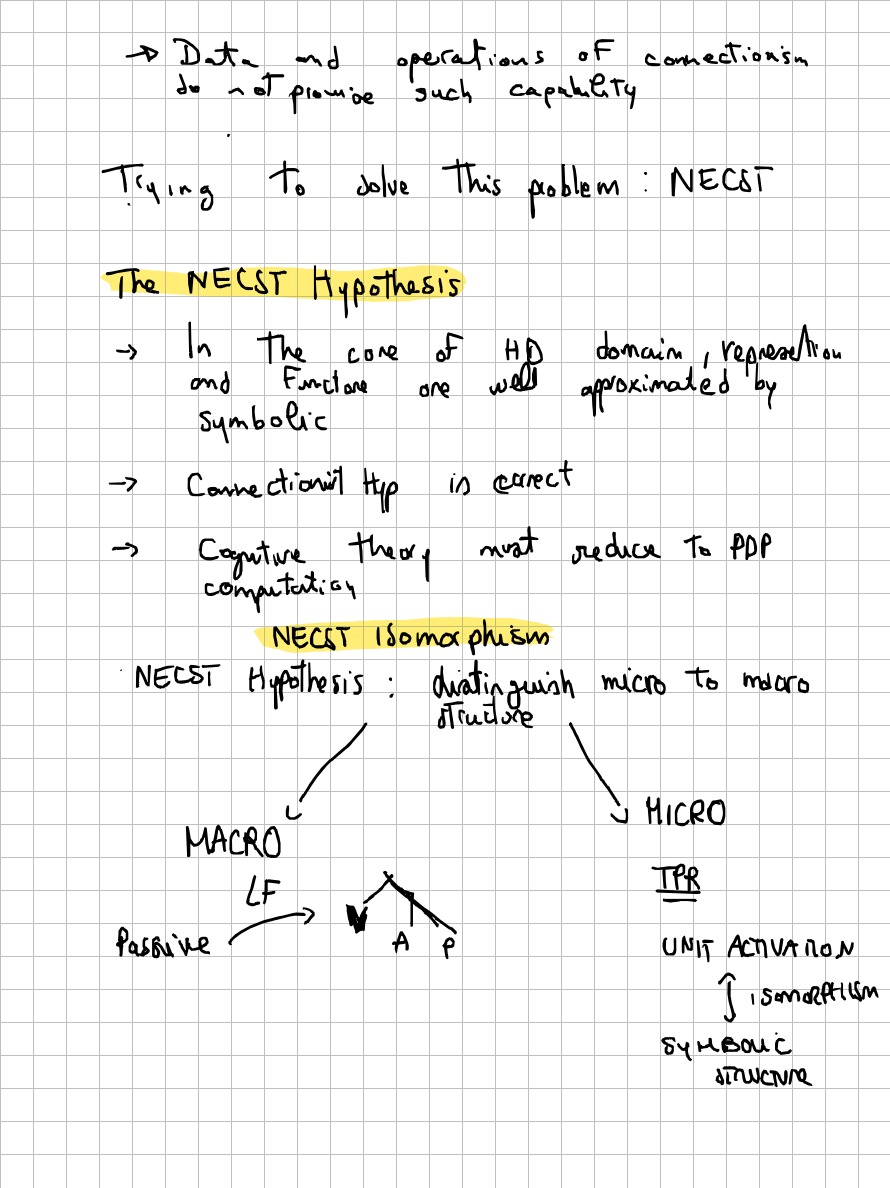 → Data and operations of connectionism
do not promise such capability
Trying to solve this problem : NECST
The NECST Hypothesis
→ In the core of HD domain, represention
and Functore are well approximated by
symbolic
→ Connectionist Hyp is correct
→ Cognitive theory must reduce to PDP
computation
NECST Isomorphism
NECST Hypothesis : distinguish micro to macro
structure
MACRO
MICRO
LF
TPR
Passive
V
A P
UNIT ACTIVATION
ISOMORPHISM
SYMBOLIC
STRUCTURE